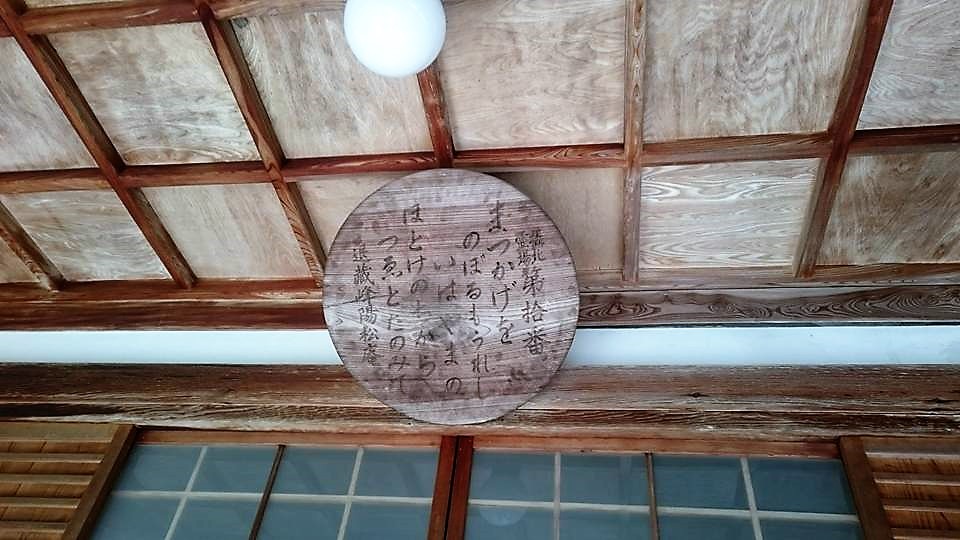 摂北
霊場 第拾番
まつかげを
のぼるもうれし
いはやまの
ほとけのちから
つゑとたのみて
退蔵峰陽松庵